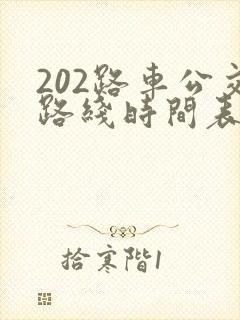 202路车公交
路綫時間表
拾寒階1